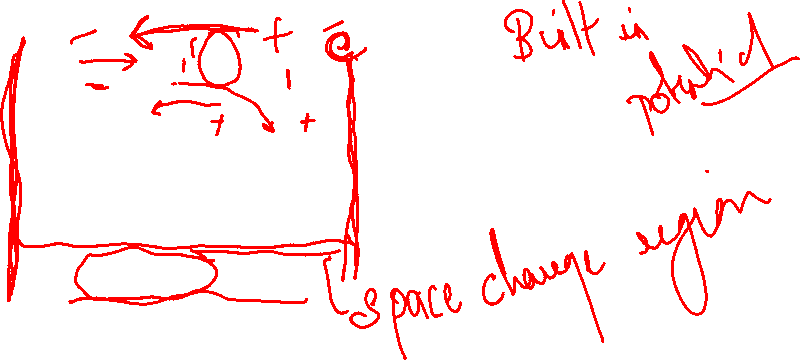 Built in
potential
space charge region